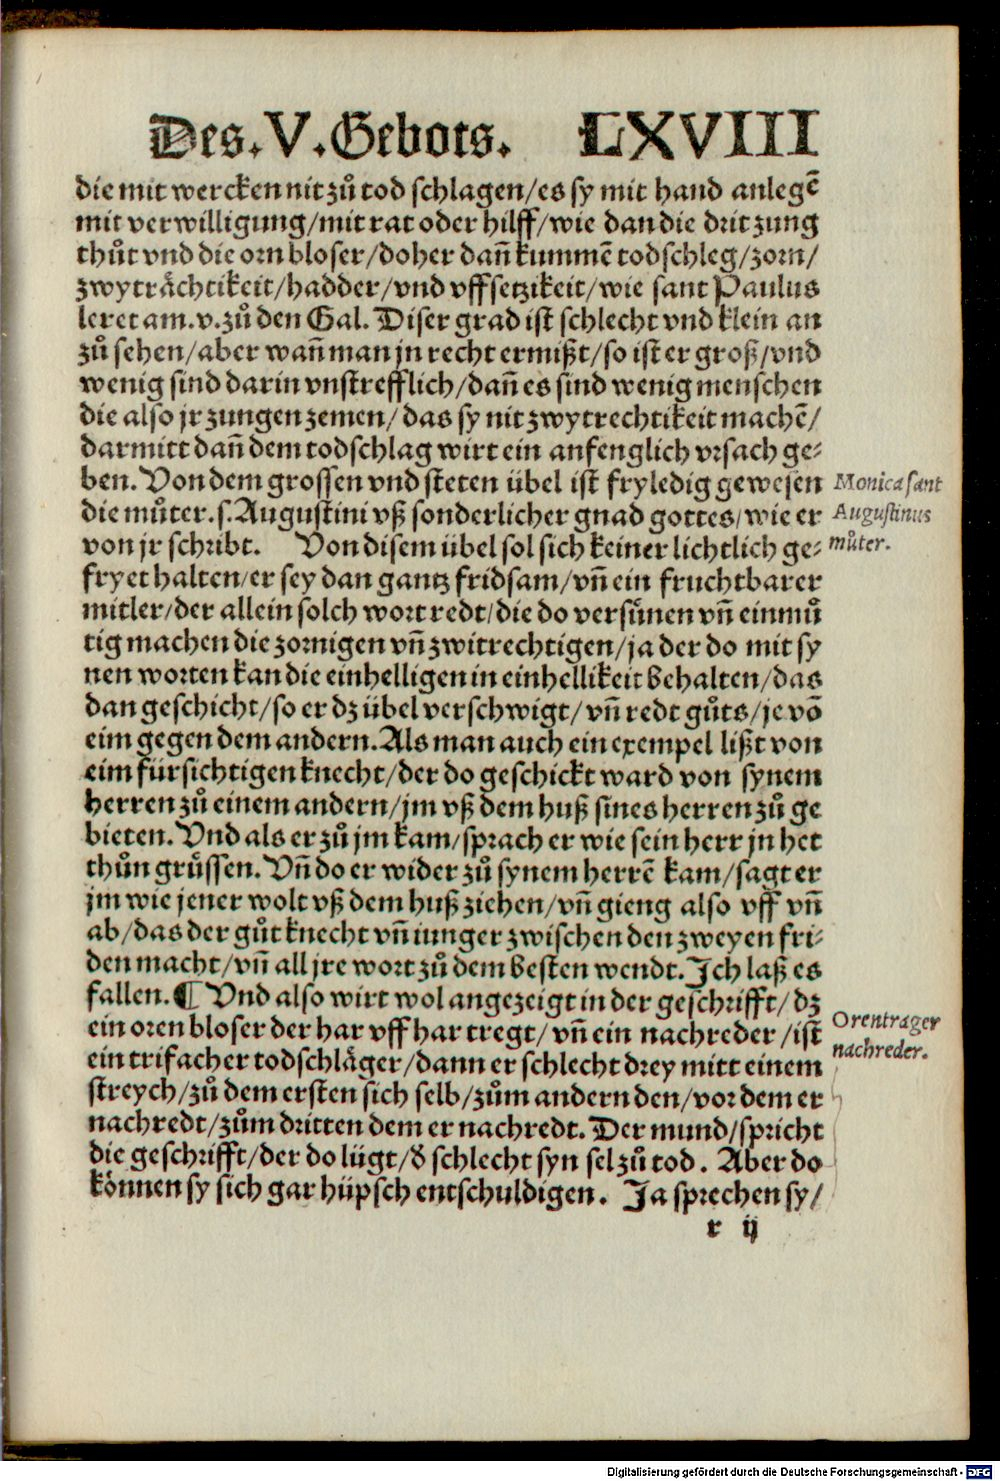 Des.V.Gebots. LXVIII
die mit wercken nit zů tod schlagen/es sy mit hand anlegē
mit verwilligung/mit rat oder hilff/wie dan die drit zung
thůt vnd die orn bloser/doher dañ kummē todschleg/zorn/
zwyträchtikeit/hadder/vnd vffsetzikeit/wie sant Paulus
leret am.v.zů den Gal. Diser grad ist schlecht vnd klein an
zů sehen/aber wañ man jn recht ermißt/so ist er groß/vnd
wenig sind darin vnstrefflich/dañ es sind wenig menschen
die also jr zungen zemen/das sy nit zwytrechtikeit machē/
darmitt dañ dem todschlag wirt ein anfenglich vrsach ge⸗
ben. Von dem grossen vnd steten übel ist fryledig gewesen
Monica sant
die můter.s.Augustini vß sonderlicher gnad gottes/wie er
Augustinus
von jr schribt. Von disem übel sol sich keiner lichtlich ge⸗
můter.
fryet halten/er sey dan gantz fridsam/vñ ein fruchtbarer
mitler/der allein solch wort redt/die do versůnen vñ einmů
tig machen die zornigen vñ zwitrechtigen/ja der do mit sy
nen worten kan die einhelligen in einhellikeit behalten/das
dan geschicht/so er dz übel verschwigt/vñ redt gůts/je vō
eim gegen dem andern. Als man auch ein exempel lißt von
eim fürsichtigen knecht/der do geschickt ward von synem
herren zů einem andern/jm vß dem huß sines herren zů ge
bieten. Vnd als er zů jm kam/sprach er wie sein herr jn het
thůn grůssen. Vñ do er wider zů synem herrē kam/sagt er
jm wie jener wolt vß dem huß ziehen/vñ gieng also vff vñ
ab/das der gůt knecht vñ iunger zwischen den zweyen fri⸗
den macht/vñ all jre wort zů dem besten wendt. Ich laß es
fallen. ¶ Vnd also wirt wol angezeigt in der geschrifft/dz
Orentrager
ein oren bloser der har vff har tregt/vñ ein nachreder/ist
nachreder.
ein trifacher todschläger/dann er schlecht drey mitt einem
streych/zů dem ersten sich selb/zům andern den/vor dem er
nachredt/zům dritten dem er nachredt. Der mund/spricht
die geschrifft/der do lügt/đ schlecht syn sel zů tod. Aber do
können sy sich gar hüpsch entschuldigen. Ja sprechen sy/
r ij
Digitalisierung gefördert durch die Deutsche Forschungsgemeinschaft - DFG